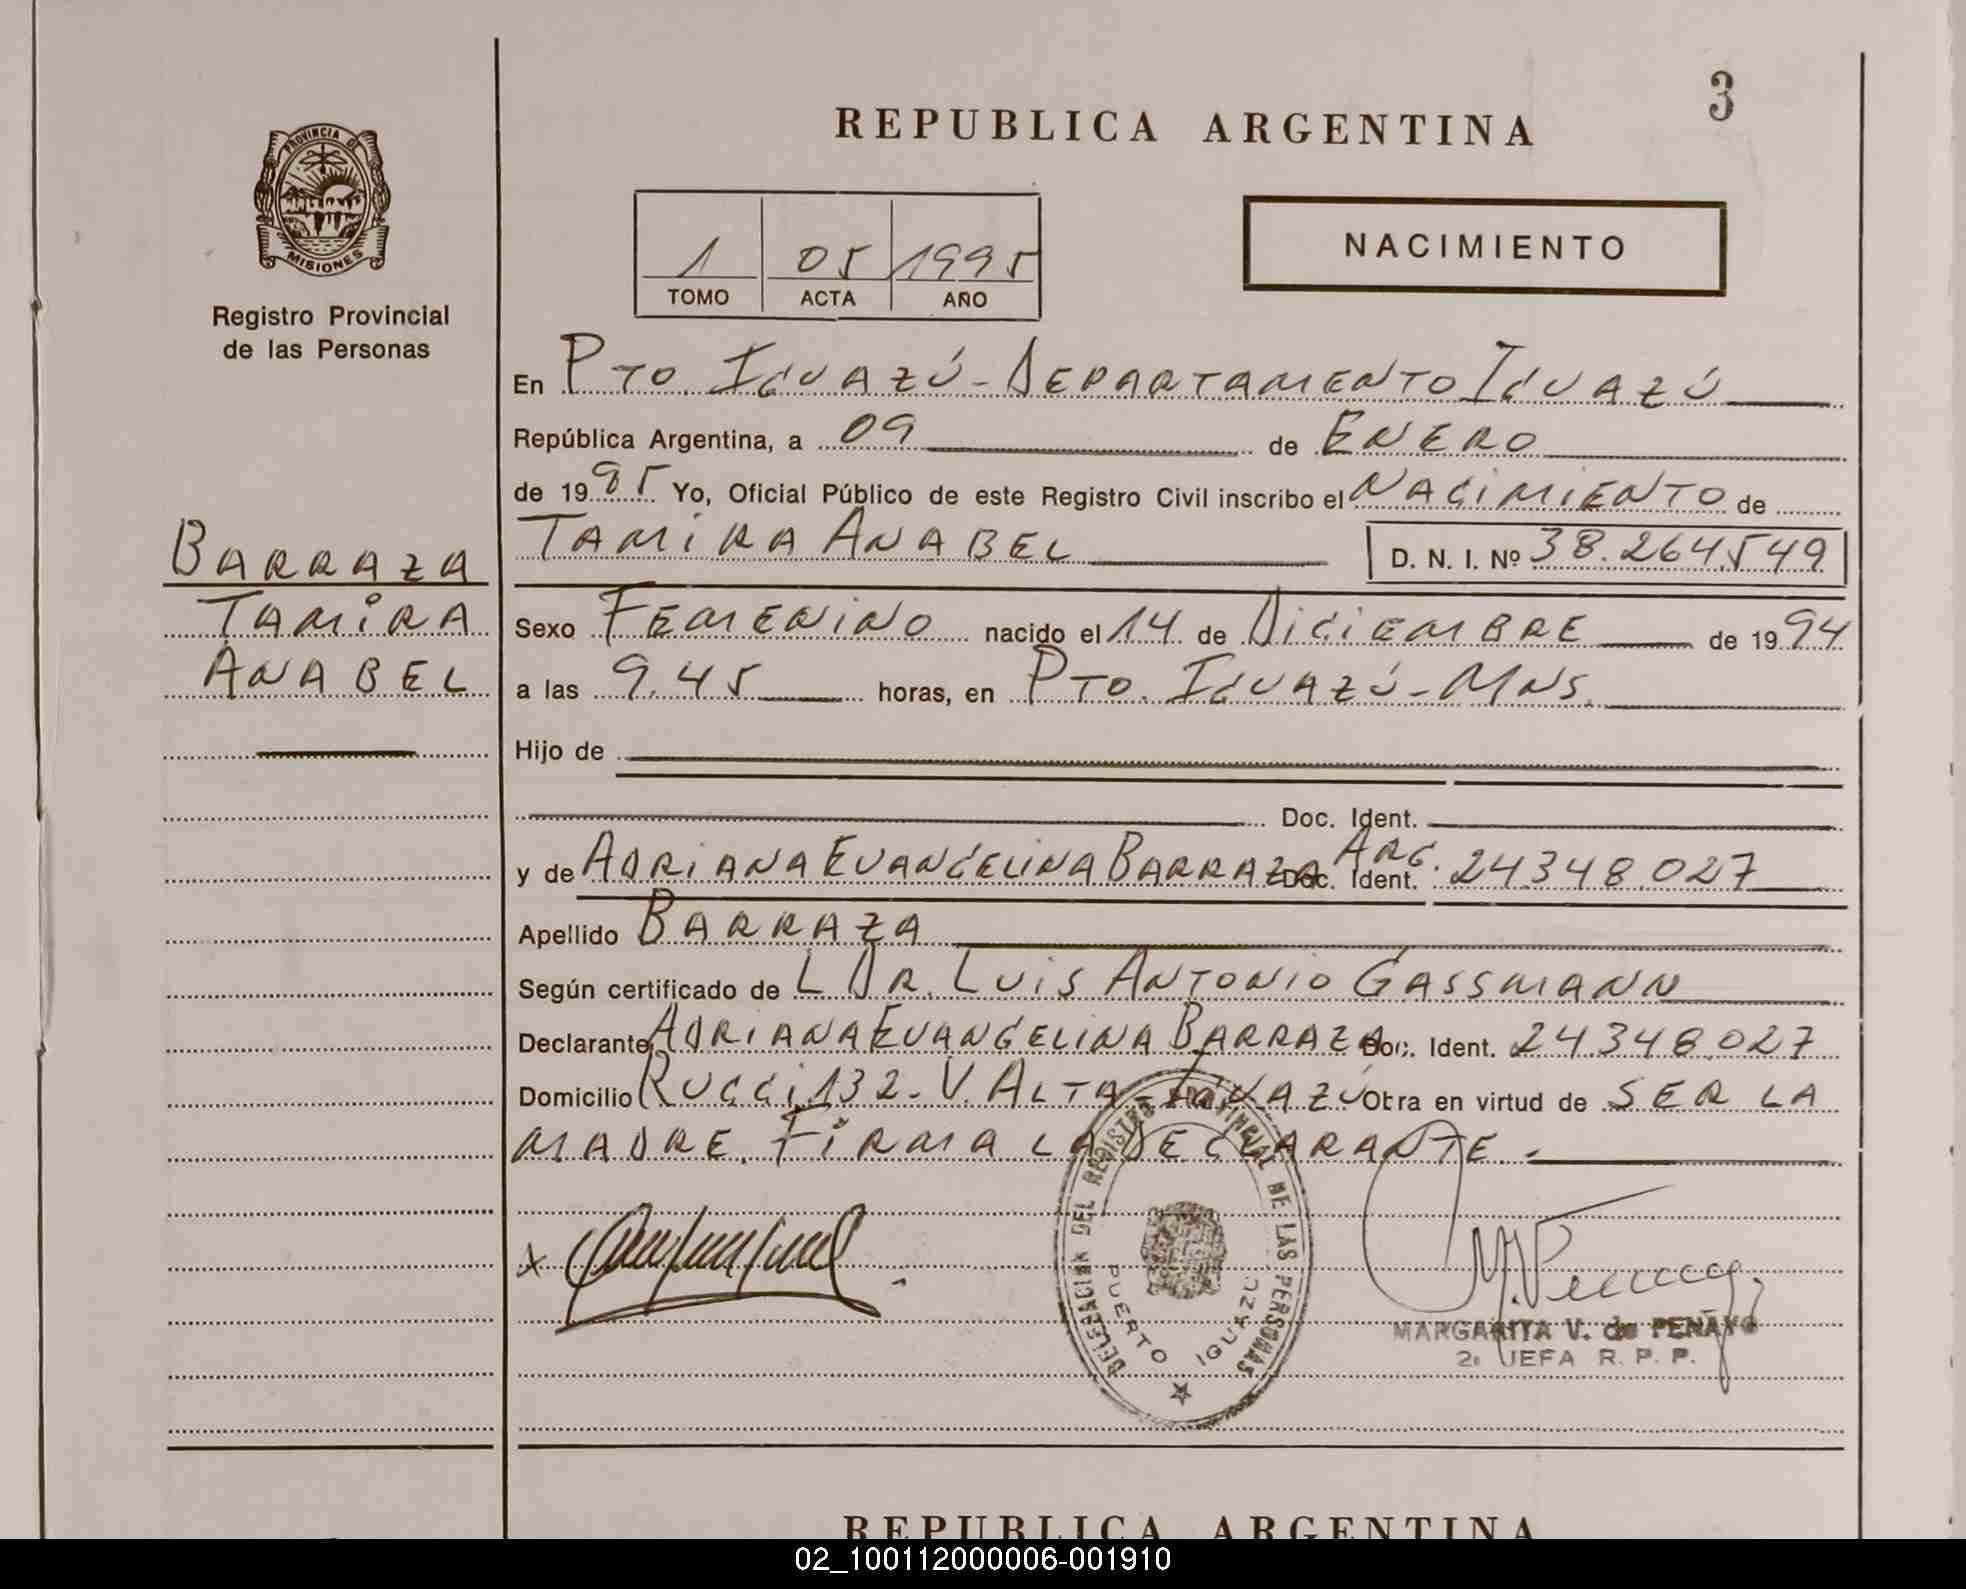 3
REPUBLICA ARGENTINA
PROVINCIA DE
MISIONES
Registro Provincial
de las Personas
1 05 1995
TOMO ACTA AÑO
NACIMIENTO
En PTO. IGUAZÚ - DEPARTAMENTO IGUAZÚ
República Argentina, a 09 de ENERO
de 1995 Yo, Oficial Público de este Registro Civil inscribo el NACIMIENTO de
TAMIRA ANABEL D. N. I. Nº 38.264.549
BARRAZA
TAMIRA
ANABEL
Sexo FEMENINO nacido el 14 de DICIEMBRE de 1994
a las 9.45 horas, en PTO. IGUAZÚ - MNS.
Hijo de
Doc. Ident.
y de ADRIANA EVANGELINA BARRAZA Doc. Ident. ARG. 24.348.027
Apellido BARRAZA
Según certificado de L DR. LUIS ANTONIO GASSMANN
Declarante ADRIANA EVANGELINA BARRAZA Doc. Ident. 24.348.027
Domicilio RUCCI 132 - V. ALTA - IGUAZÚ Obra en virtud de SER LA
MADRE. FIRMA LA DECLARANTE.-
X
DELEGACION DEL REGISTRO PROVINCIAL DE LAS PERSONAS
PUERTO IGUAZU
MARGARITA V. de PENAYO
2a JEFA R. P. P.
REPUBLICA ARGENTINA
02_100112000006-001910